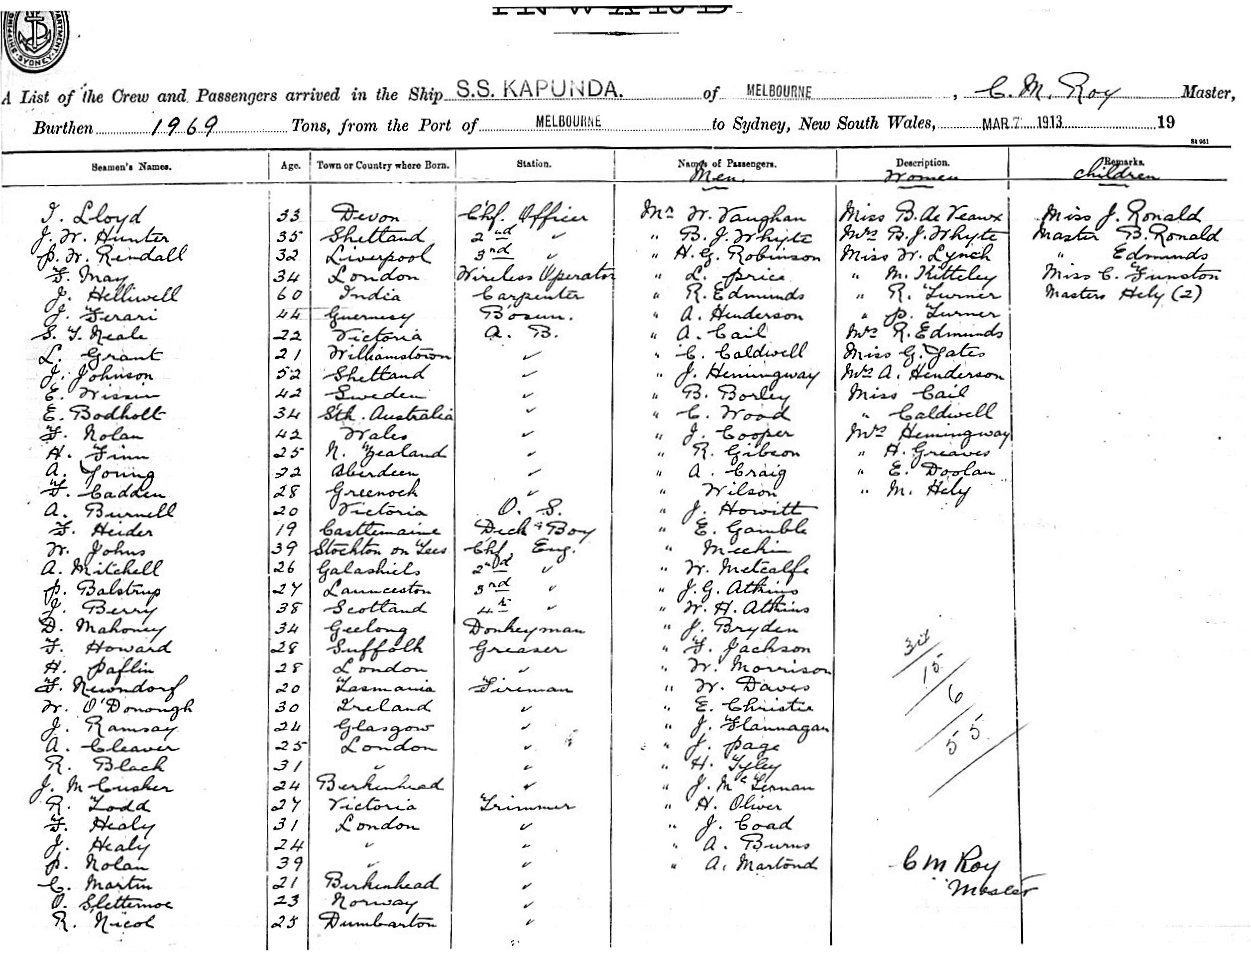 INWARD
DEPARTMENT. SYDNEY. SHIPPING
A List of the Crew and Passengers arrived in the Ship S.S. KAPUNDA. of MELBOURNE, C. M. Roy Master,
Burthen 1969 Tons, from the Port of MELBOURNE to Sydney, New South Wales, MAR 7 1913 19
Seamen's Names. Age. Town or Country where Born. Station. Names of Passengers. Description. Remarks.
Men. Women Children
J. Lloyd 33 Devon Chf. Officer Mr W. Vaughan Miss B. de Veaux Miss J. Ronald
J. W. Hunter 35 Shetland 2nd " " B. J. Whyte Mrs B. J. Whyte Master B. Ronald
P. W. Rendall 32 Liverpool 3rd " " H. G. Robinson Miss W. Lynch " Edmunds
F. May 34 London Wireless Operator " L. Price " M. Kitteley Miss C. Funston
J. Helliwell 60 India Carpenter " R. Edmunds " R. Turner Masters Hely (2)
J. Ferari 44 Guernsey Bosun. " A. Henderson " P. Turner
S. T. Neale 22 Victoria A. B. " A. Cail Mrs R. Edmunds
L. Grant 21 Williamstown " " C. Caldwell Miss G. Yates
J. Johnson 52 Shetland " " J. Hemingway Mrs A. Henderson
E. 42 Sweden " " B. Borley Miss Cail
E. Bodholt 34 Sth. Australia " " C. Wood " Caldwell
F. Nolan 42 Wales " " J. Cooper Mrs Hemingway
H. Finn 25 N. Zealand " " R. Gibson " H. Greaves
A. Young 22 Aberdeen " " A. Craig " E. Doolan
F. Cadden 28 Greenock " " Wilson " M. Hely
A. Burnell 20 Victoria O. S. " J. Howitt
F. Heider 19 Castlemaine Deck Boy " E. Gamble
W. Johns 39 Stockton on Tees Chf. Eng. " Meehin
A. Mitchell 26 Galashiels 2nd " " W. Metcalfe
P. Balstrup 27 Launceston 3rd " " J. G. Atkins
J. Berry 38 Scotland 4th " " W. H. Atkins
D. Mahoney 34 Geelong Donkeyman " J. Bryden
F. Howard 28 Suffolk Greaser " F. Jackson
H. Paflin 28 London " " W. Morrison
F. Newndorf 20 Tasmania Fireman " W. Davis
W. O'Donough 30 Ireland " " E. Christie
J. Ramsay 24 Glasgow " " J. Flannagan
A. Cleaver 25 London " " J. Page
R. Black 31 " " " H. Tyley
J. McCusker 24 Birkenhead " " J. McLernan
R. Todd 27 Victoria Trimmer " H. Oliver
F. Healy 31 London " " J. Coad
J. Healy 24 " " " A. Burns
P. Nolan 39 " " " A. Martond
C. Martin 21 Birkenhead "
O. Slettemoe 23 Norway "
R. Nicol 25 Dumbarton "
34
15
6
55
C M Roy
Master